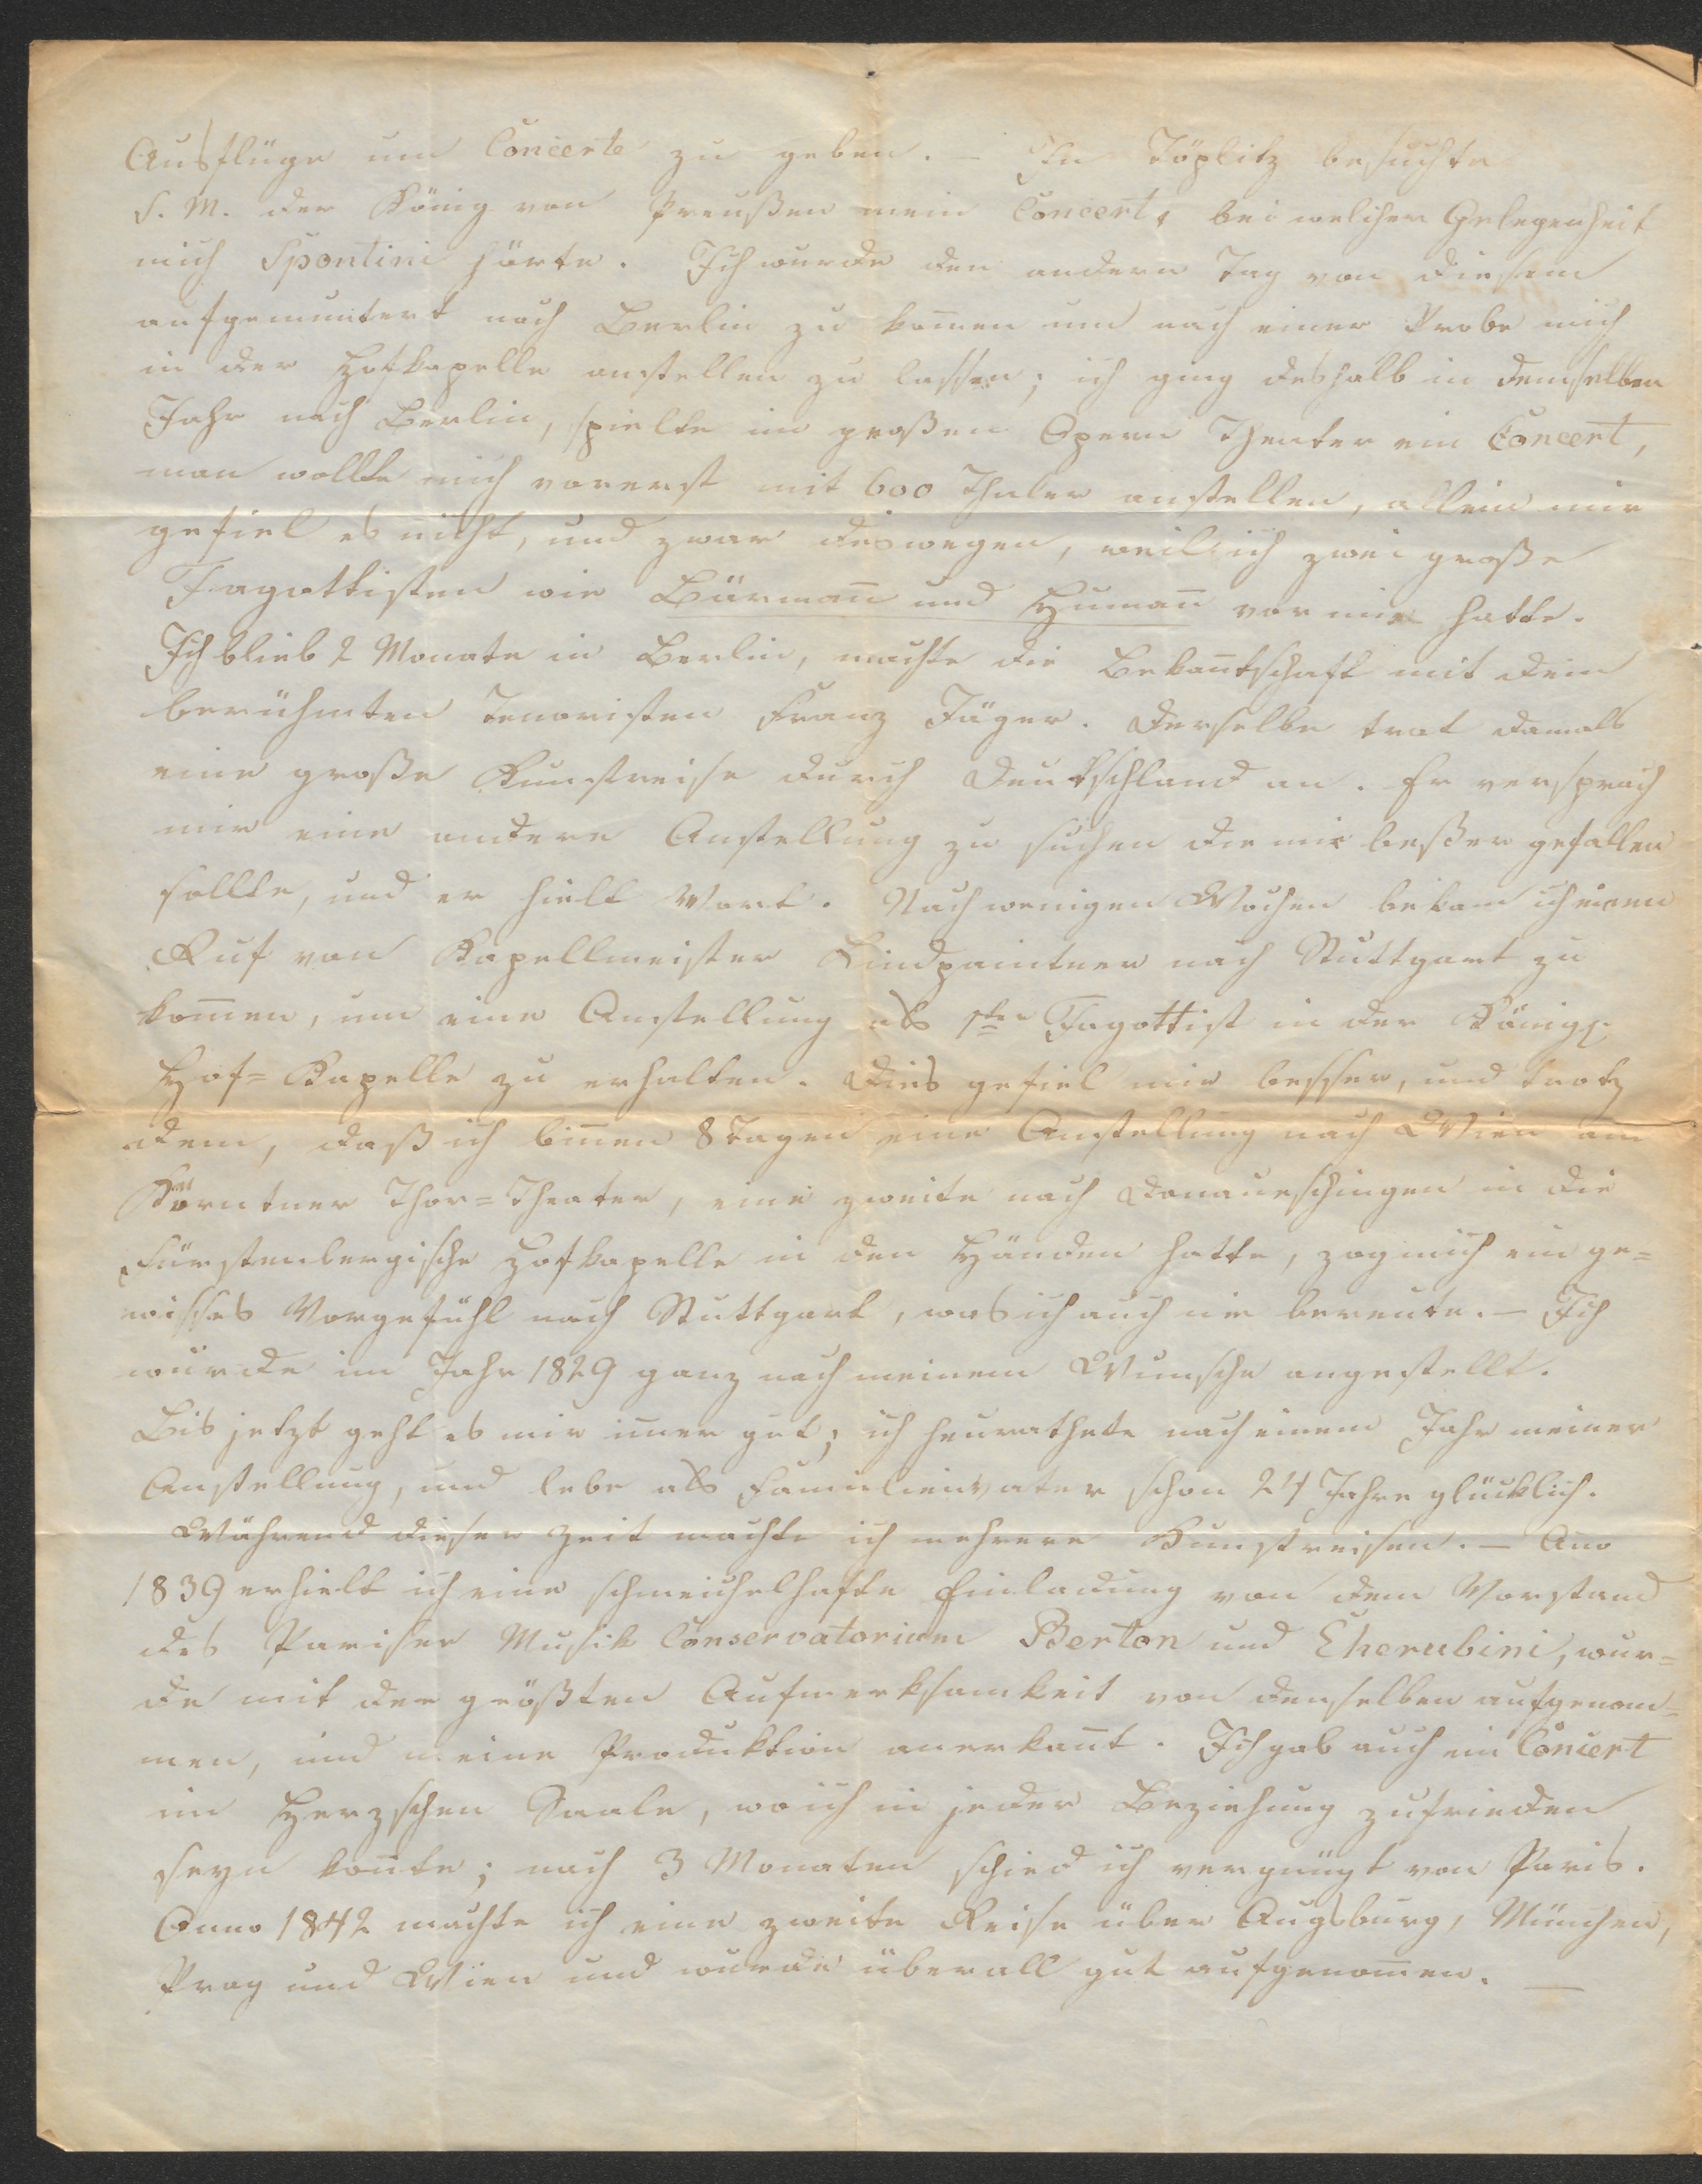 Ausflüge um Concerte zu geben. – In Töplitz besuchte
S. M. der König von Preußen mein Concert, bei welcher Gelegenheit
mich Spontini hörte. Ich wurde den andern Tag von diesem
aufgemuntert nach Berlin zu kom̄en um nach einer Probe mich
in der Hofkapelle anstellen zu lassen; ich ging deshalb in demselben
Jahr nach Berlin, spielte im großen Opern Theater ein Concert,
man wollte mich vorerst mit 600 Thaler anstellen, allein mir
gefiel es nicht, und zwar deswegen, weil ich zwei große
Fagottisten wie Bärman̄ und Human̄ vor mir hatte.
Ich blieb 2 Monate in Berlin, machte die Bekan̄tschaft mit dem
berühmten Tenoristen Franz Jäger. Derselbe trat damals
eine große Kunstreise durch Deutschland an. Er versprach
mir eine andere Anstellung zu suchen die mir beßer gefallen
sollte, und er hielt Wort. Nach wenigen Wochen bekam ich einen
Ruf von Kapellmeister Lindpaintner nach Stuttgart zu
kom̄en, um eine Anstellung als 1ter Fagottist in der Königl.
Hof= Kapelle zu erhalten. Dies gefiel mir besser, und trotz
dem, daß ich bin̄en 8 Tagen eine Anstellung nach Wien am
Körntner Thor=Theater, eine zweite nach Donaueschingen in die
Fürstenbergische Hofkapelle in den Händen hatte, zog mich ein ge=
wisses Vorgefühl nach Stuttgart, was ich auch nie bereute. – Ich
wurde im Jahr 1829 ganz nach meinem Wunsche angestellt.
Bis jetzt geht es mir im̄er gut; ich heurathete nach einem Jahr meiner
Anstellung, und lebe als Familienvater schon 24 Jahre glücklich.
Während dieser Zeit machte ich mehrere Kunstreisen. – An̄o
1839 erhielt ich eine schmeichelhafte Einladung von dem Vorstand
des Pariser Musik Conservatorium Berton und Cherubini, wur=
de mit der größten Aufmerksamkeit von denselben aufgenom=
men, und meine Produktion anerkan̄t. Ich gab auch ein Concert
im Herzschen Saale, wo ich in jeder Beziehung zufrieden
seyn kon̄te; nach 3 Monaten schied ich vergnügt von Paris.
Anno 1842 machte ich eine zweite Reise über Augsburg, München,
Prag und Wien und wurde überall gut aufgenom̄en. —